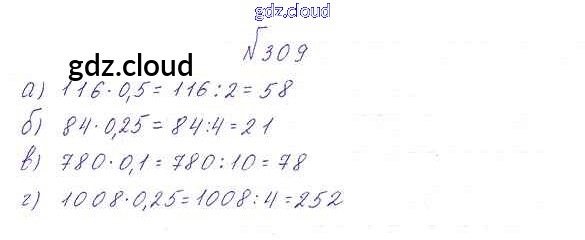 gdz.cloud
№309
gdz.cloud
а) 116·0,5=116:2=58
б) 84·0,25=84:4=21
в) 780·0,1=780:10=78
г) 1008·0,25=1008:4=252